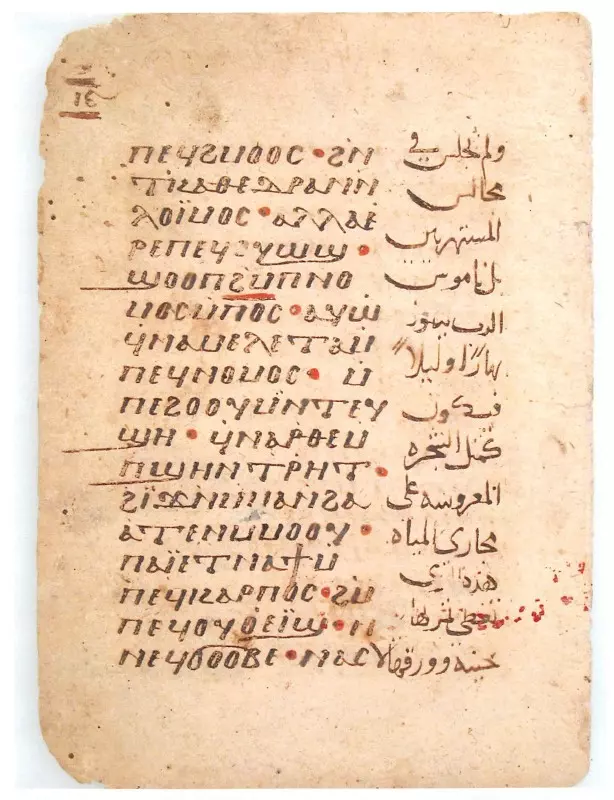 ⲡⲉϥϩⲙⲟⲟⲥ · ϩⲛ
ⲧⲕⲁⲑⲉⲇⲣⲁⲛⲛ
ⲗⲟⲓ̈ⲙⲟⲥ · ⲁⲗⲗⲁⲉ
ⲣⲉⲡⲉϥⲟⲩⲱϣ ·
ϣⲟⲟⲡϩⲙⲡⲛⲟ
ⲙⲟⲥⲙⲡⲟⲥ · ⲁⲩⲱ
ϥⲛⲁⲙⲉⲗⲉⲧⲁⲙ
ⲡⲉϥⲛⲟⲙⲟⲥ · ⲙ
ⲡⲉϩⲟⲟⲩⲙⲛⲧⲉⲩ
ϣⲏ · ϥⲛⲁⲣⲑⲉⲙ
ⲡϣⲏⲛⲧⲣⲏⲧ ·
ϩⲓ̈ϫⲛⲙⲙⲁⲛϩⲁ
ⲁⲧⲉⲛⲙⲙⲟⲟⲩ ·
ⲡⲁⲓ̈ⲉⲧⲛⲁϯⲙ
ⲡⲉϥⲕⲁⲣⲡⲟⲥ · ϩⲙ
ⲡⲉϥⲟⲩⲟⲉⲓ̈ϣ · ⲛ
ⲛⲉϥϭⲟⲟⲃⲉ · ⲛⲁⲥ
ولم يجلس في
مجالس
المستهزيين
بل ناموس
الرب
نهارًا وليلًا
فيكون
كمثل الشجره
المغروسه على
مجاري المياه
هذه التي
تعطي ثمرها
حينه وورقها لا